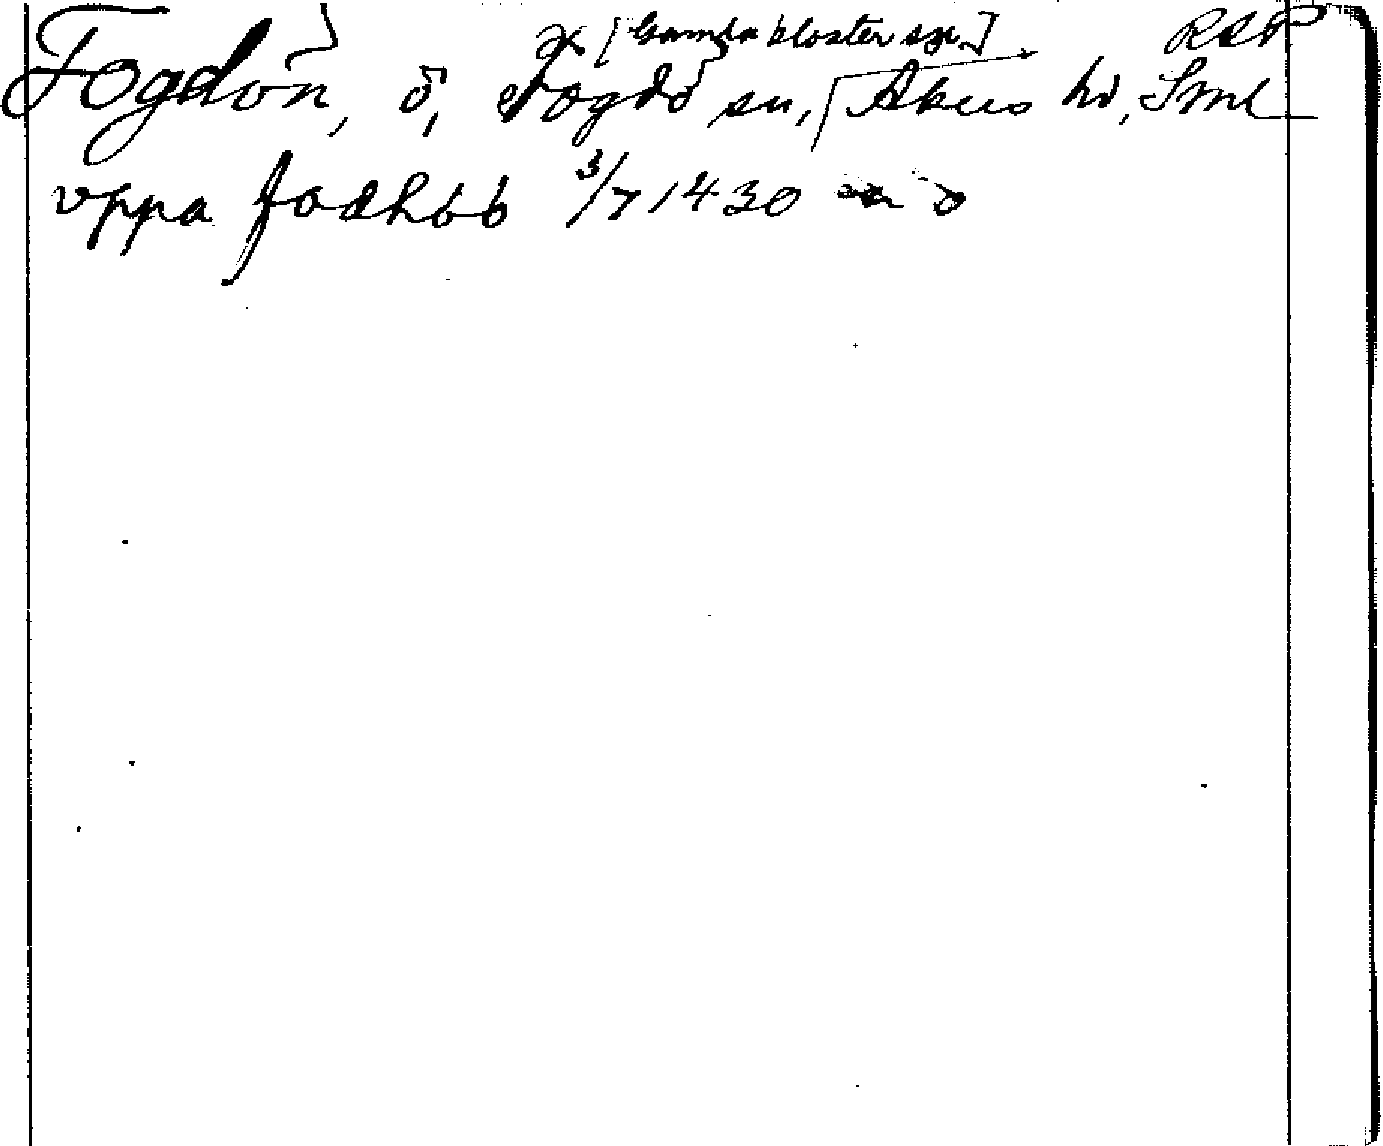 [Gamla kloster sn.] RAP
Fogdön, ö, Fogdö sn, Åkers hd, Sml
vppa fodhöö 3/7 1430 o